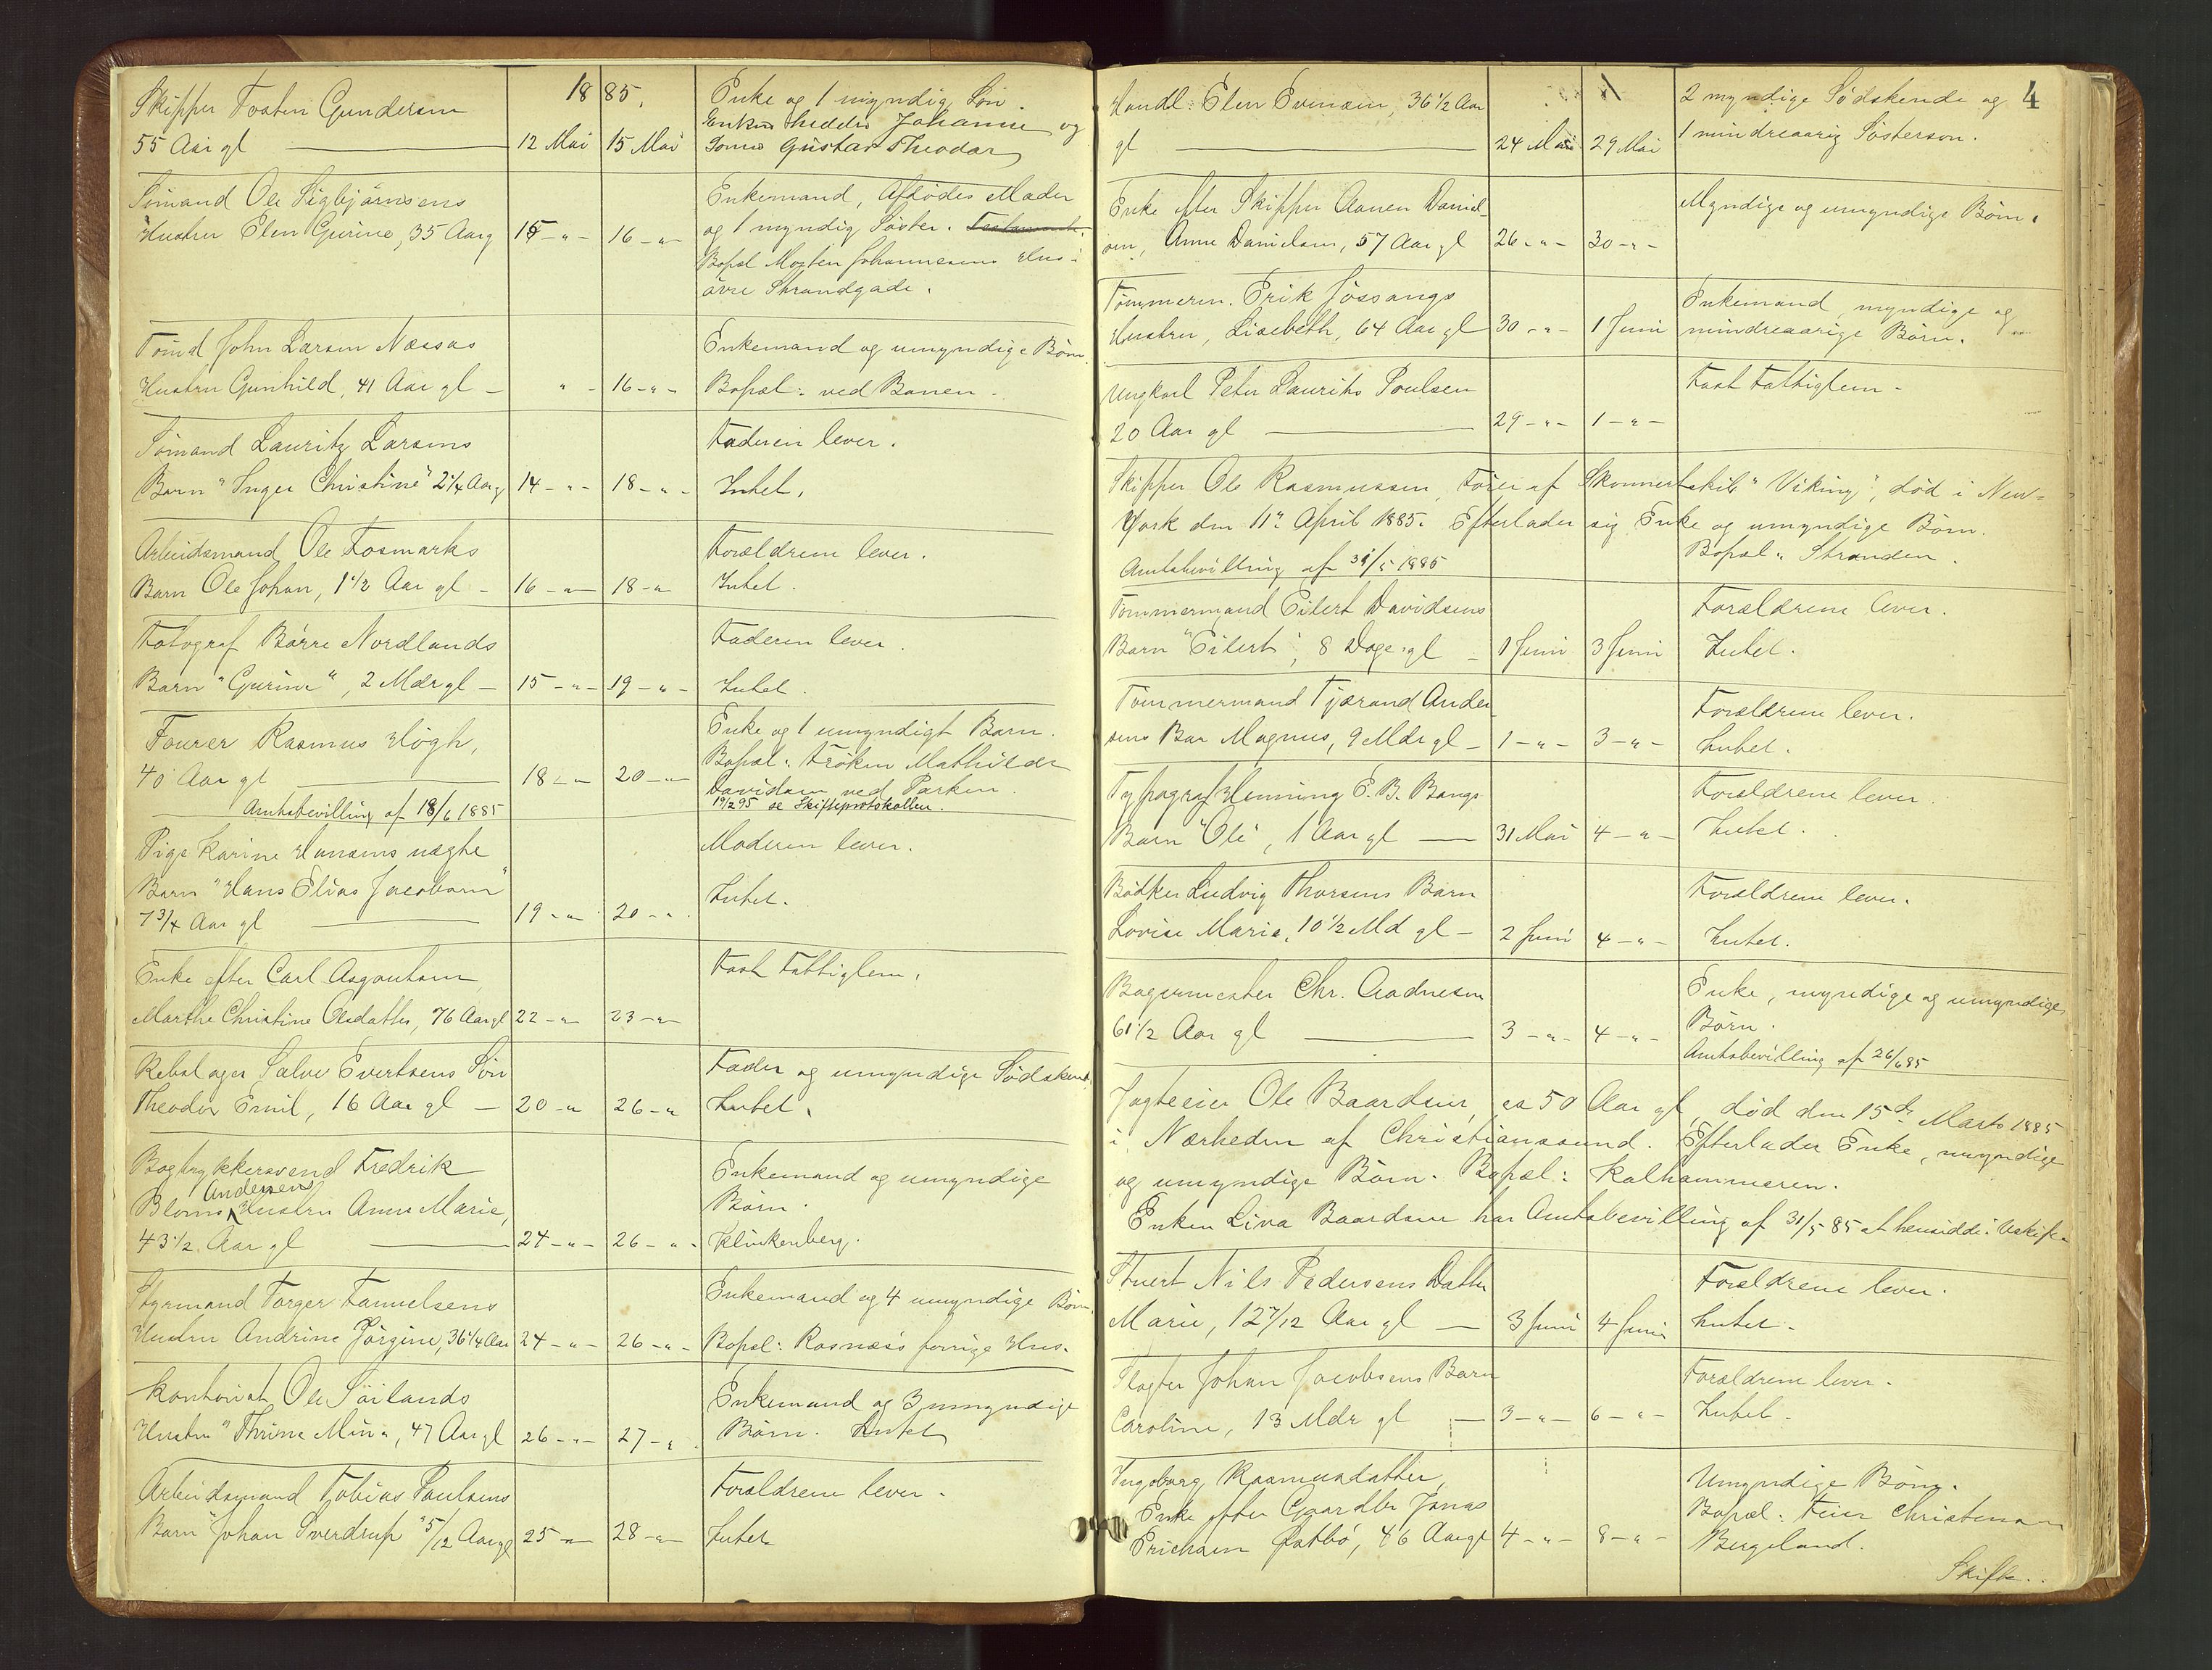 1885.
Skipper Tosten Gundersen
55 Aar gl 12 Mai 15 Mai
Enke og 1 myndig Søn.
Enkens hedder Johanne og
Sønnes Gustav Theodor
Sömand Ole Sigbjörnsens
Hustru Elen Gurine, 35 Aar g 15 - " - 16 - " -
Enkemand, Afdødes Moder
og 1 myndig Söster.
Bopæl Morten Johannesens Hus i
övre Strandgade.
Tömd John Larsen Næsses
Hustru Gunhild, 41 Aar gl - " - 16 - " -
Enkemand og umyndige Börn.
Bopæl: ved Banen.
Sömand Lauritz Larsens
Barn "Inger Christine" 2 1/4 Aar g 14 - " - 18 - " -
Faderen lever.
Intet.
Arbeidsmand Ole Fosmarks
Barn Ole Johan, 1 1/2 Aar gl - 16 - " - 18 - "
Forældrene lever.
Intet.
Fotograf Börre Nordlands
Barn "Gurine", 2 Mdr gl - 15 - " - 19 - " -
Faderen lever.
Intet.
Fourer Rasmus Högh,
40 Aar gl 18 - " 20 - "
Amtsbevilling af 18/6 1885
Enke og 1 umyndigt Barn.
Bopæl: Fröken Mathilde
Davidsen ved Parken.
19/2 95 se Skifteprotokollen.
Pige Karine Hansens uægte
Barn "Hans Elias Jacobsen"
7 3/4 Aar gl 19 - " 20 - " .
Moderen lever.
Intet.
Enke efter Carl Asgautsen,
Marthe Christine Olsdatter, 76 Aar gl 22 - " 23 - "
Fast Fattiglem.
Rebslager Salve Evertsens Sön
Theodor Emil, 16 Aar gl - 20 - " 26 - "
Fader og umyndige Södskend.
Intet.
Bogtrykkersvend Fredrik
Andersens
Bloms Hustru Anne Marie,
43 1/2 Aar gl 24 - " - 26 - " .
Enkemand og umyndige
Börn.
Klinkenberg.
Styrmand Torger Samuelsens
Hustru Andrine Jörgine, 36 1/4 Aar 24 - " - 26 - " -
Enkemand og 4 umyndige Börn.
Bopæl: Rosnæs's forrige Hus.
Kontorist Ole Söilands
Hustru "Thrine Mina, 47 Aar gl 26 - " - 27 - " .
Enkemand og 3 umyndige
Börn. Intet
Arbeidsmand Tobias Paulsens
Barn "Johan Sverdrup" 5/12 Aar gl 25 - " 28 - "
Forældrene lever.
Intet
4
Handl: Elen Evensen, 36 1/2 Aar
gl 24 Mai 29 Mai
2 myndige Södskende og
1 mindreaarig Sösterson.
Enke efter Skipper Aanen Daniel-
sen, Anne Danielsen, 57 Aar gl 26 - " - 30 - " -
Myndige og umyndige Börn.
Tömmerm. Erik Jössangs
Hustru, Lisebeth, 64 Aar gl 30 - " - 1 Juni
Enkemand, myndige og
mindreaarige Börn.
Ungkarl Peter Lauritz Poulsen
20 Aar gl 29 - " - 1 - " -
Fast Fattiglem.
Skipper Ole Rasmussen, Förer af Skonnertskib "Viking", död i New-
York den 11te April 1885. Efterlader sig Enke og umyndige Börn.
Bopæl: Stranden.
Amtsbevilling af 31/5 1885
Tömmermand Eilert Davidsens
Barn "Eilert", 8 Dage gl - 1 Juni 3 Juni
Forældrene lever.
Intet.
Tömmermand Tjærand Ander-
sens Bar Magnus, 9 Mdr gl - 1 - " - 3 - " -
Forældrene lever.
Intet.
Typograf Henning E. B. Bangs
Barn "Ole", 1 Aar gl 31 Mai 4 - " -
Forældrene lever.
Intet.
Bödker Ludvig Thorsens Barn
Lovise Marie, 10 1/2 Md gl - 2 Juni 4 - " -
Forældrene lever.
Intet.
Bagermester Chr. Aadnesen
61 1/2 Aar gl 3 - " - 4 - " -
Enke, myndige og umyndige
Börn.
Amtsbevilling af 26/6 85
Jagteeier Ole Baardsen, ca 50 Aar gl, död den 15de Marts 1885
i Nærheden af Christianssund. Efterlader Enke, myndige
og umyndige Börn. Bopæl: Kalhammeren.
Enken Liva Baardsen har Amtsbevilling af 31/5 85 at hensidde i Uskifte
Stuert Nils Pedersens Datter
Marie, 12 7/12 Aar gl - 3 Juni 4 Juni
Forældrene lever.
Intet.
Slagter Johan Jacobsens Barn
Caroline, 13 Mdr gl - 3 - " - 6 - " -
Forældrene lever.
Intet.
Ingeborg Rasmusdatter,
Enke efter Gaardbr Jonas
Erichsen 46 Aar gl 4 - " - 8 - " -
Umyndige Börn.
Bopæl: Feier Christensen
Bergeland.
Skifte.